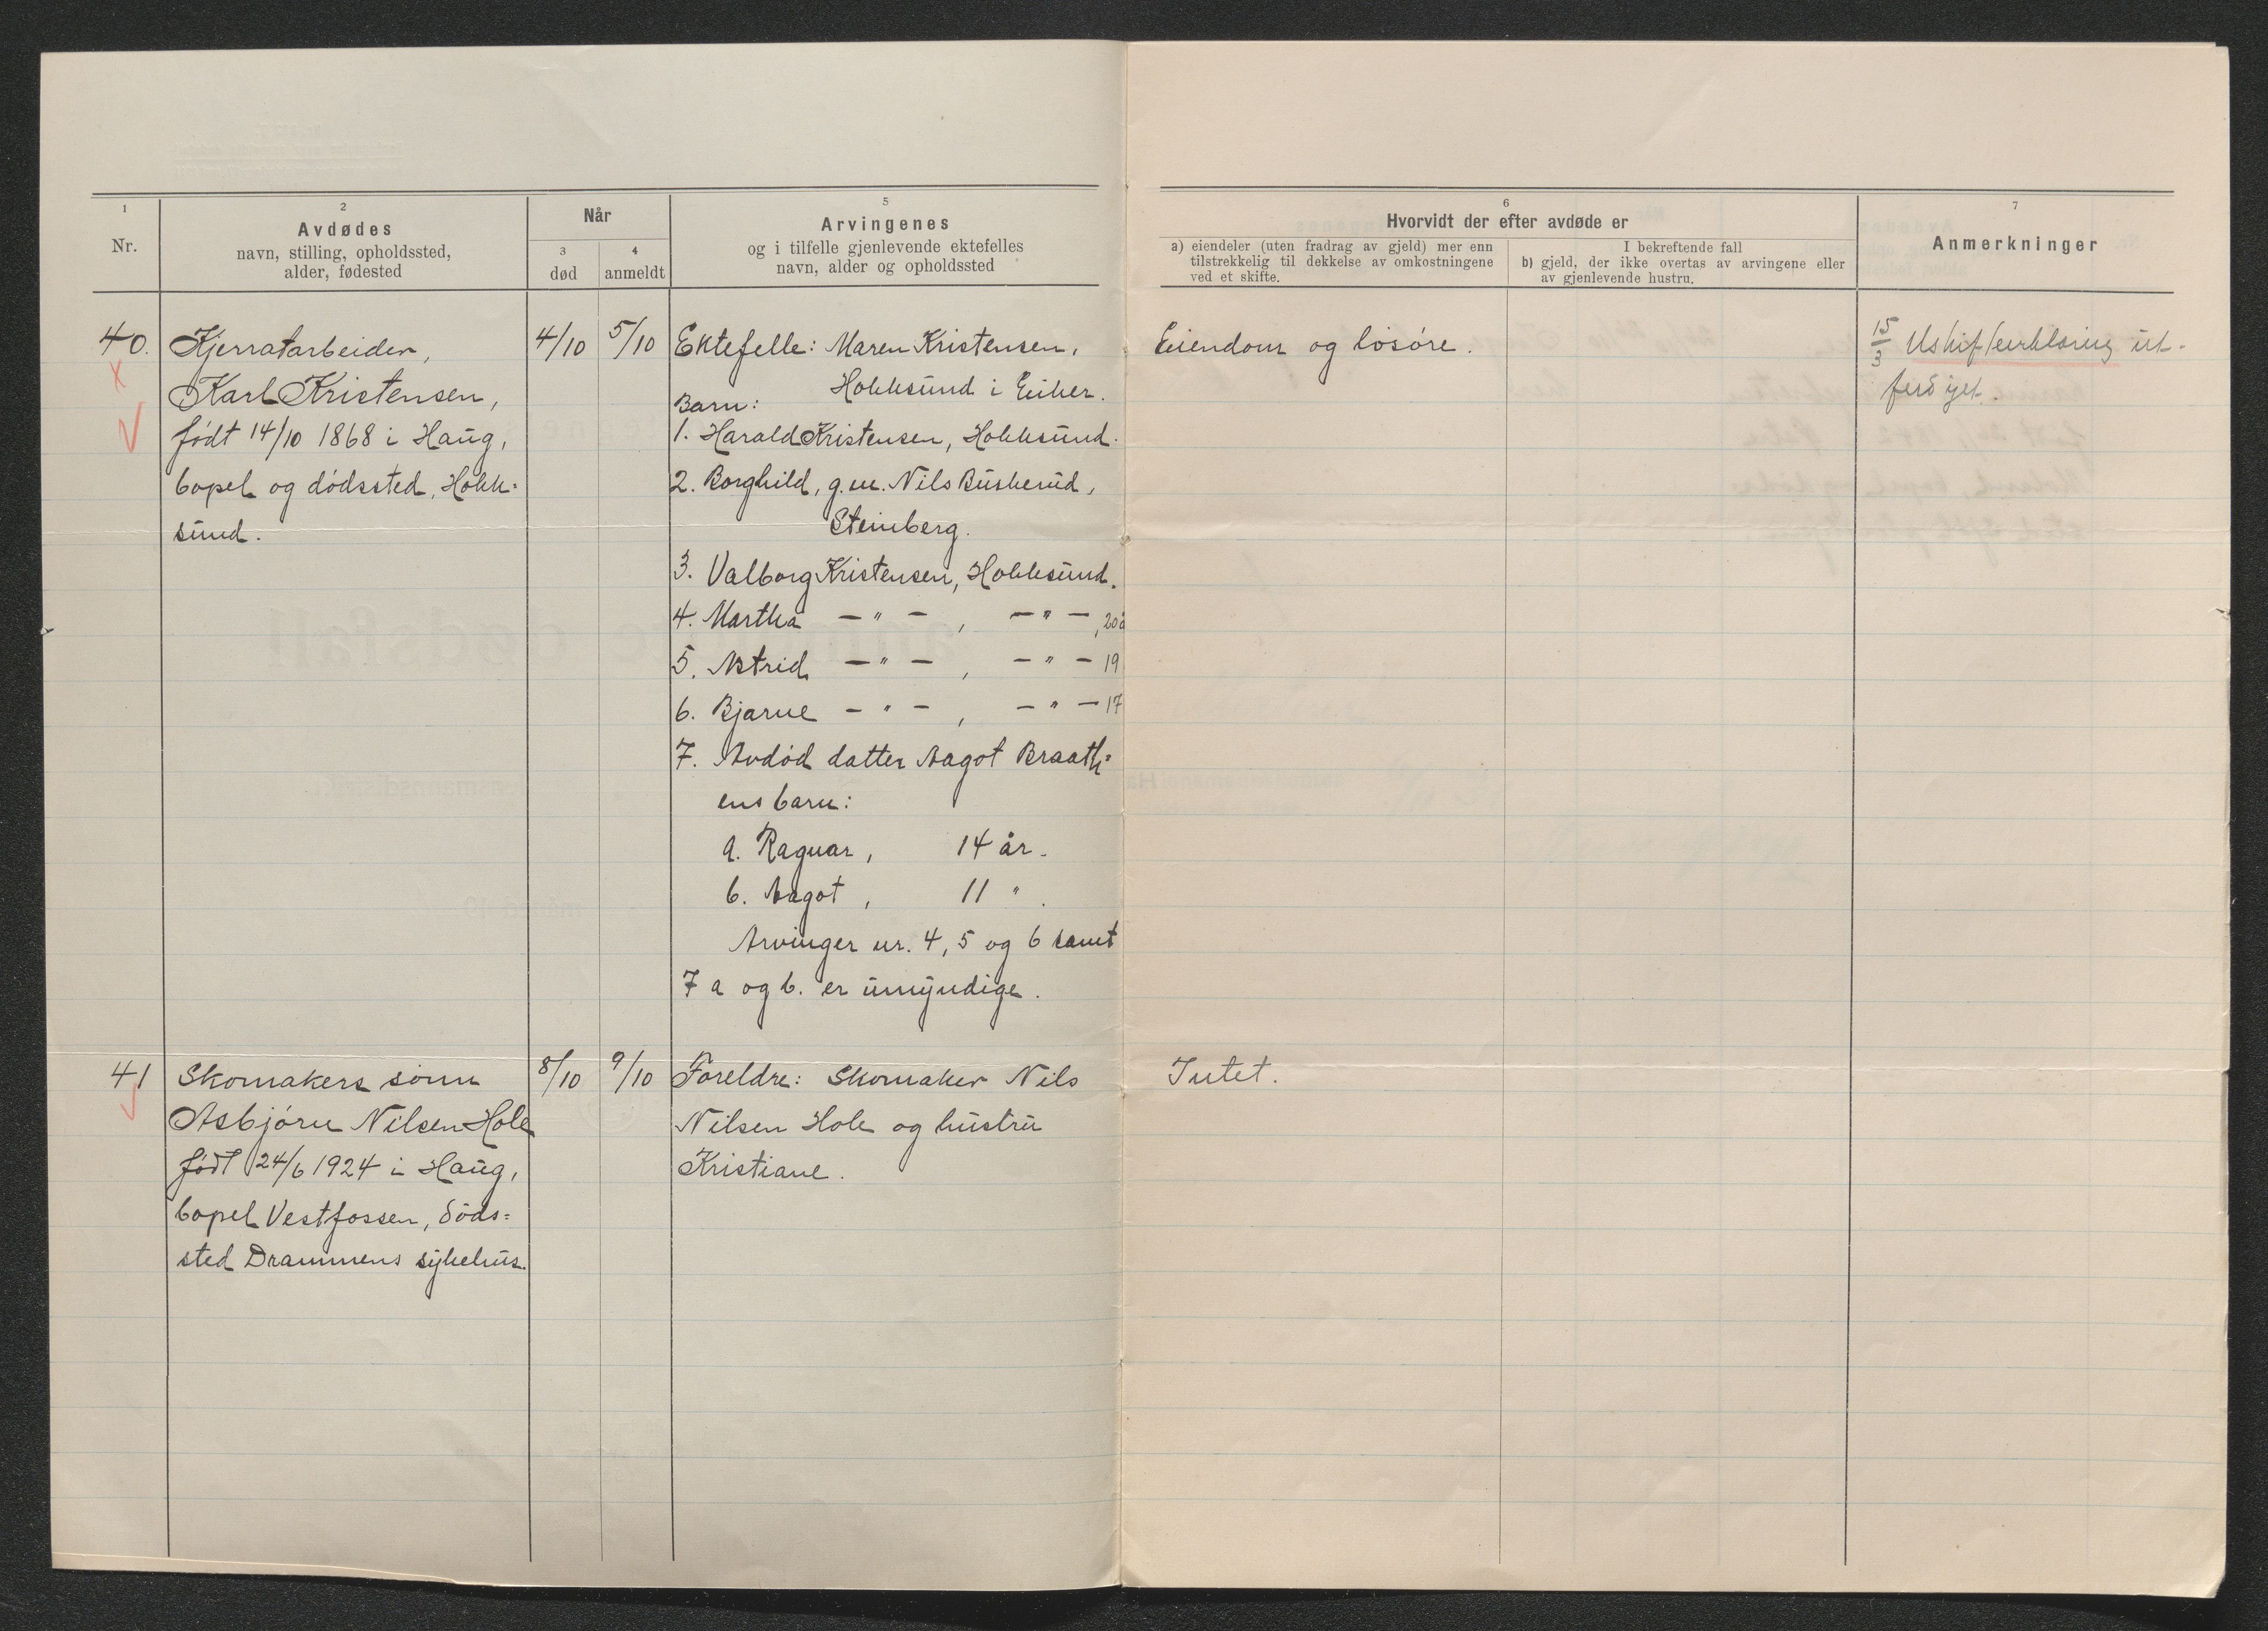 1
Nr.
2
Avdødes
navn, stilling, opholdssted,
alder, fødested
Når
3
død
4
anmeldt
5
Arvingenes
og i tilfelle gjenlevende ektefelles
navn, alder og opholdssted
6
Hvorvidt der efter avdøde er
a) eiendeler (uten fradrag av gjeld) mer enn
tilstrekkelig til dekkelse av omkostningene
ved et skifte.
I bekreftende fall
b) gjeld, der ikke overtas av arvingene eller
av gjenlevende hustru.
7
Anmerkninger
40.
Kjerratarbeider,
Karl Kristensen,
født 14/10 1868 i Haug,
bopel og dødssted, Hokk=
sund.
4/10
5/10
Ektefelle: Maren Kristensen,
Hokksund i Eiker.
Barn:
1. Harald Kristensen, Hokksund.
2. Borghild, g.m. Nils Buskerud,
Steinberg.
3. Valborg Kristensen, Hokksund.
4. Martha — " — , — " — , 20 å
5. Astrid — " — , — " — 19
6. Bjarne — " — , — " — 17
7. Avdød datter Aagot Braath=
ens barn:
a. Ragnar, 14 år.
b. Aagot, 11 " .
Arvinger nr. 4, 5 og 6 samt
7 a og b. er umyndige.
Eiendom og løsøre.
15/3 Uskifteerklæring ut-
ferdiget.
41
Skomakers sønn
Asbjørn Nilsen Hole
født 24/6 1924 i Haug,
bopel Vestfossen, døds=
sted Drammens sykehus.
8/10
9/10
Foreldre: Skomaker Nils
Nilsen Hole og hustru
Kristiane.
Intet.